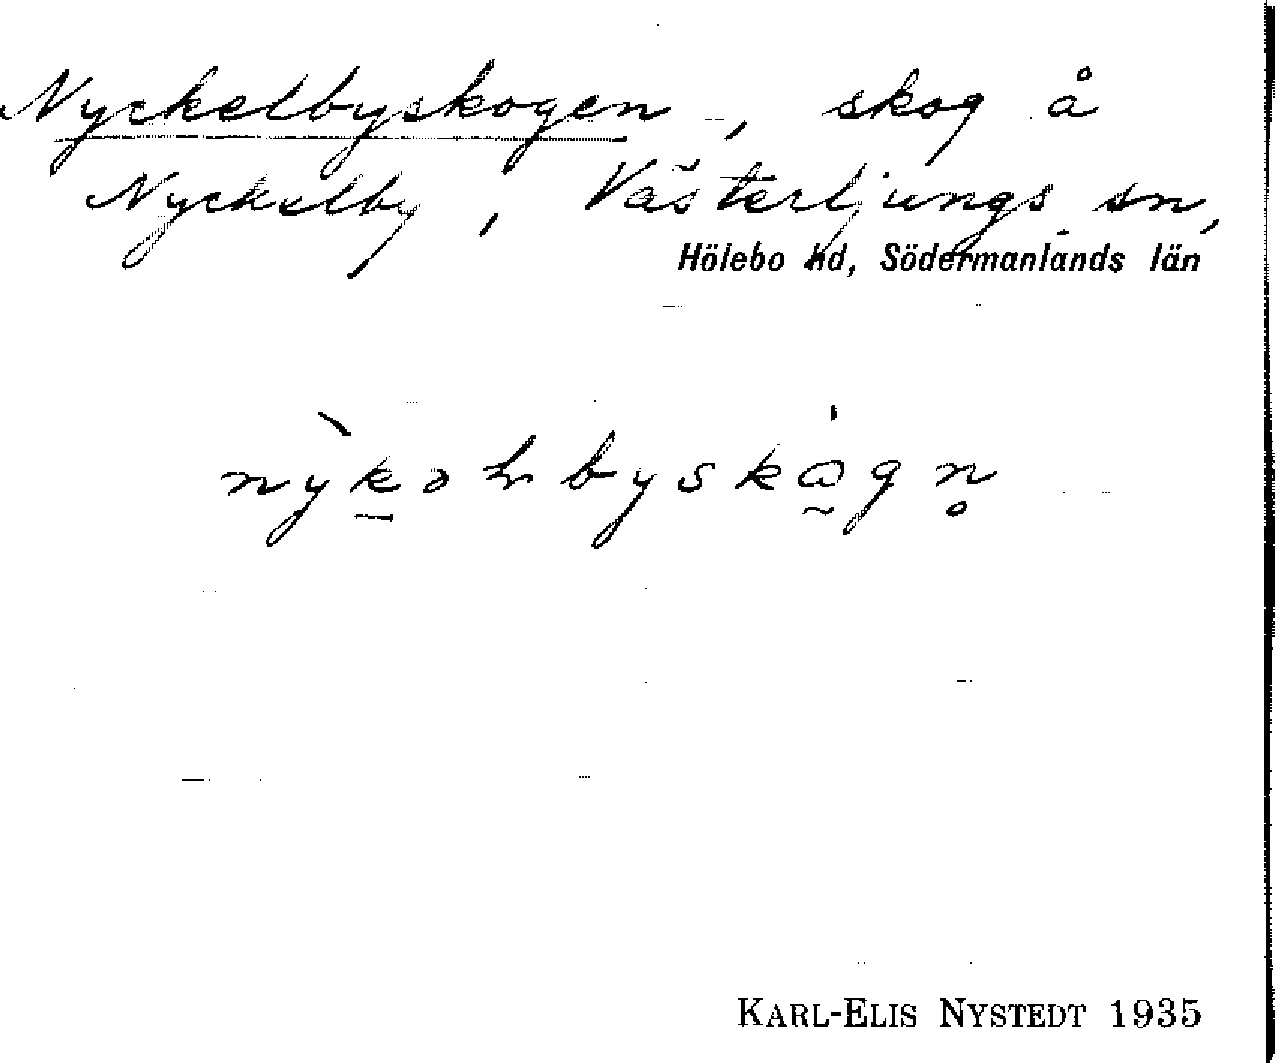 Nyckelbyskogen, skog å
Nyckelby, Västerljungs sn,
Hölebo hd, Södermanlands län
KARL-ELIS NYSTEDT 1935